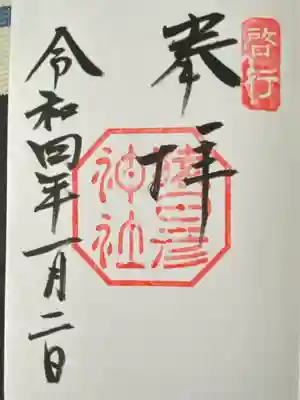 啓行
奉拝
猿田彦
神社
令和四年一月二日